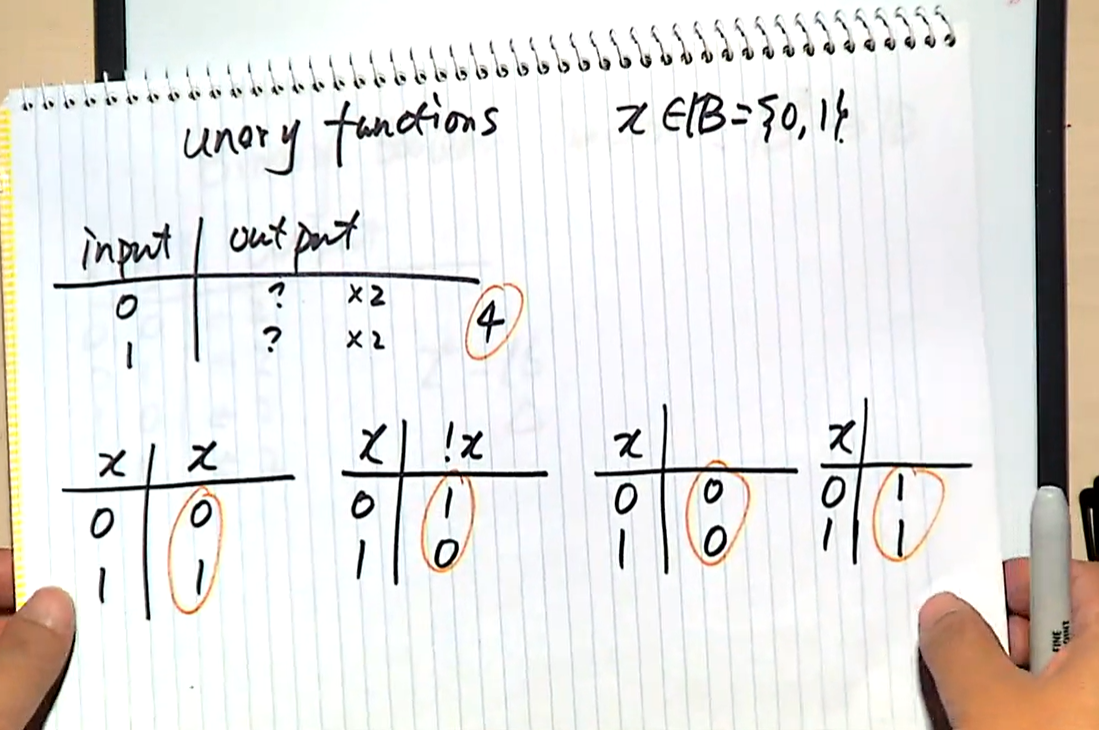 unary functions x ∈ 𝔹 = {0, 1}
input | output
0 | ? ×2
1 | ? ×2
4
x | x
0 | 0
1 | 1
x | !x
0 | 1
1 | 0
x |
0 | 0
1 | 0
x |
0 | 1
1 | 1
FINE
POINT